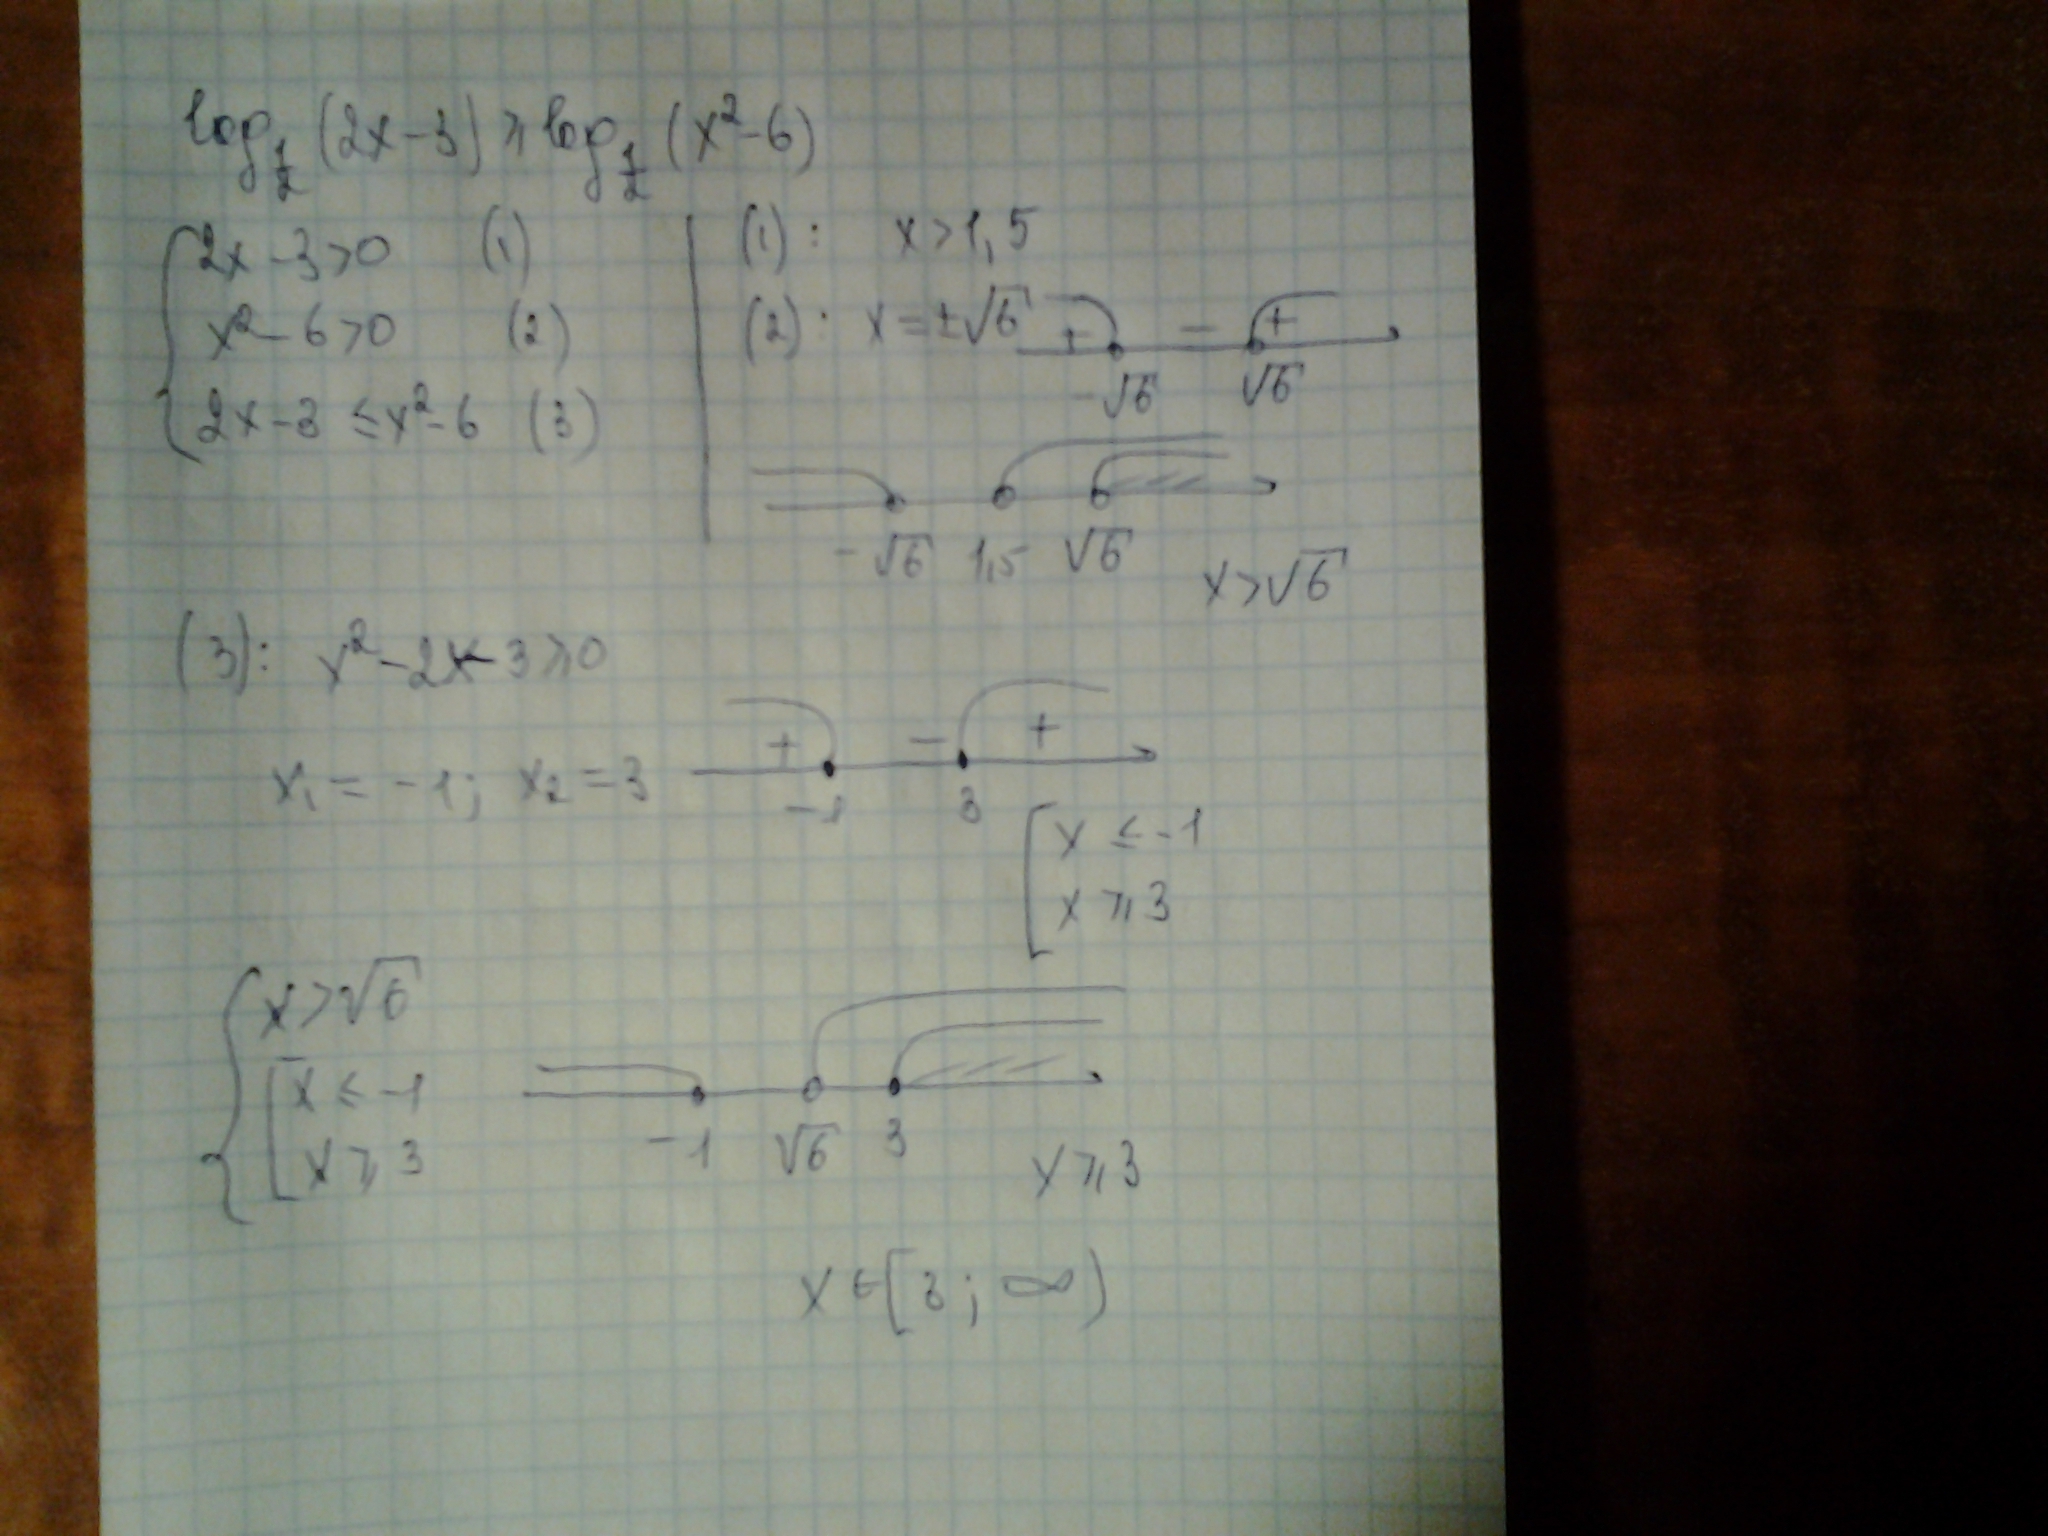 log_{1/2} (2x-3) ≥ log_{1/2} (x²-6)
2x-3>0 (1)
x²-6>0 (2)
2x-3 ≤ x²-6 (3)
(1): x>1,5
(2): x=±√6
+ - +
-√6 √6
-√6 1,5 √6
x>√6
(3): x²-2x-3≥0
x₁=-1; x₂=3
+ - +
-1 3
x ≤ -1
x ≥ 3
x>√6
x ≤ -1
x ≥ 3
-1 √6 3
x ≥ 3
x∈[3; ∞)